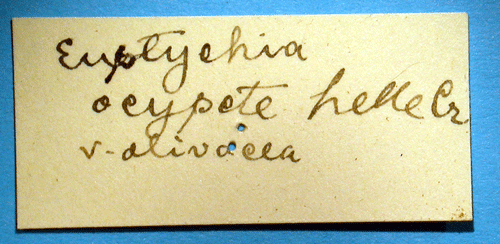 Euptychia
ocypete helle Cr
v. olivacea